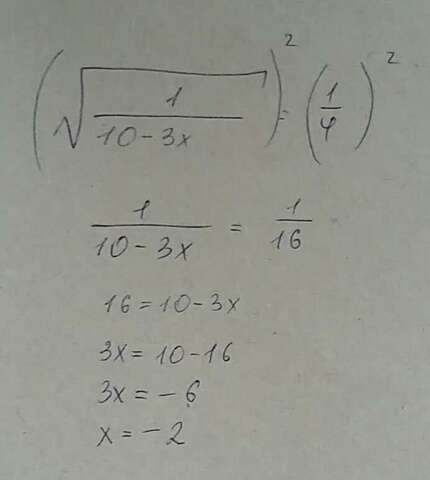 (√(1/(10-3x)))² = (1/4)²
1/(10-3x) = 1/16
16=10-3x
3x=10-16
3x=-6
x=-2